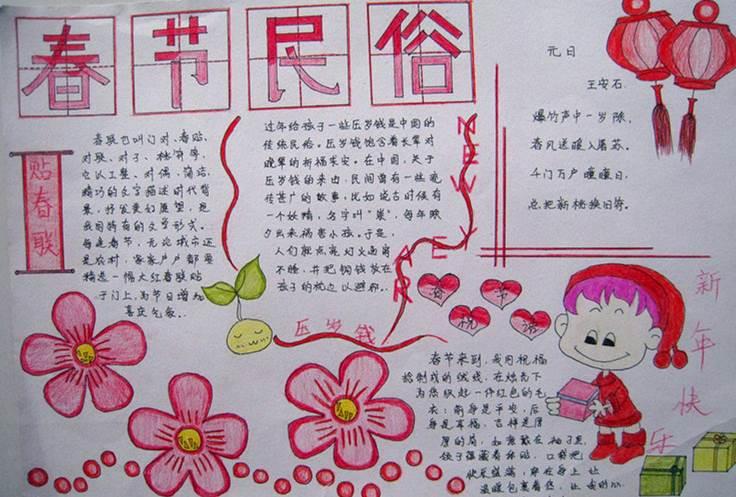 春节民俗
贴春联
春联也叫门对、春贴、
对联、对子、桃符等,
它以工整、对偶、简洁、
精巧的文字描述时代背
景,抒发美好愿望,是
我国特有的文学形式。
每逢春节,无论城市还
是农村,家家户户都要
精选一幅大红春联贴
于门上,为节日增加
喜庆气氛。
过年给孩子一些压岁钱是中国的
传统民俗。压岁钱饱含着长辈对
晚辈的祈福求安。在中国,关于
压岁钱的来由,民间留有一些流
传甚广的故事,比如说古时候有
一个妖精,名字叫"祟",每年除
夕出来祸害小孩。于是,
人们就点亮灯火通宵
不睡,并把铜钱放在
孩子的枕边以避邪。
压岁钱
NEW
YEAR
元日
王安石
爆竹声中一岁除,
春风送暖入屠苏。
千门万户曈曈日,
总把新桃换旧符。
春节
祝语
春节来到,我用祝福
在烛光下
为您织起一件红色的毛
衣:前身是平安,后
身是幸福,吉祥是厚
厚的肩,如意藏在袖子里,
领子强藏着体贴,口袋把
快乐盛满,穿在身上,让
温暖包裹着您,让我的心
新年快乐